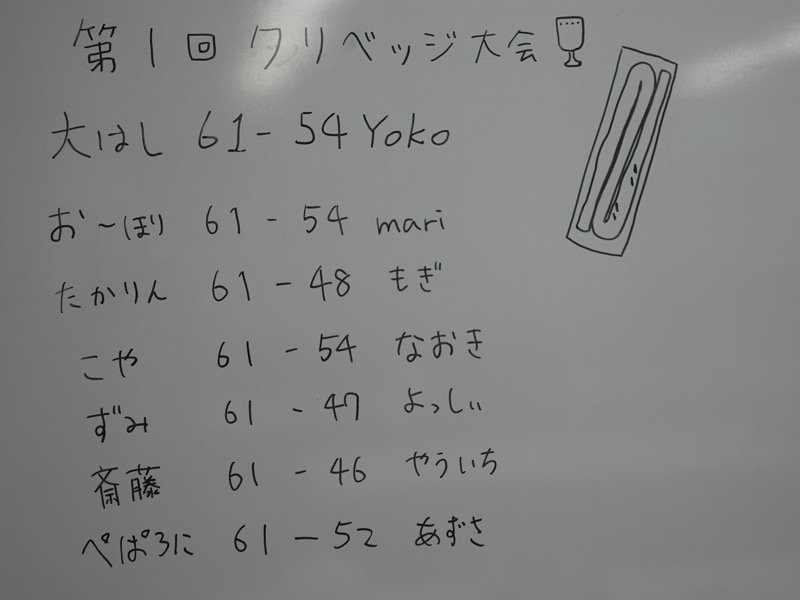 第1回 クリベッジ大会
大はし 61 - 54 Yoko
お〜ぼり 61 - 54 mari
たかりん 61 - 48 もぎ
こや 61 - 54 なおき
ずみ 61 - 47 よっしぃ
斎藤 61 - 46 やういち
ぺぱろに 61 - 52 あずさ